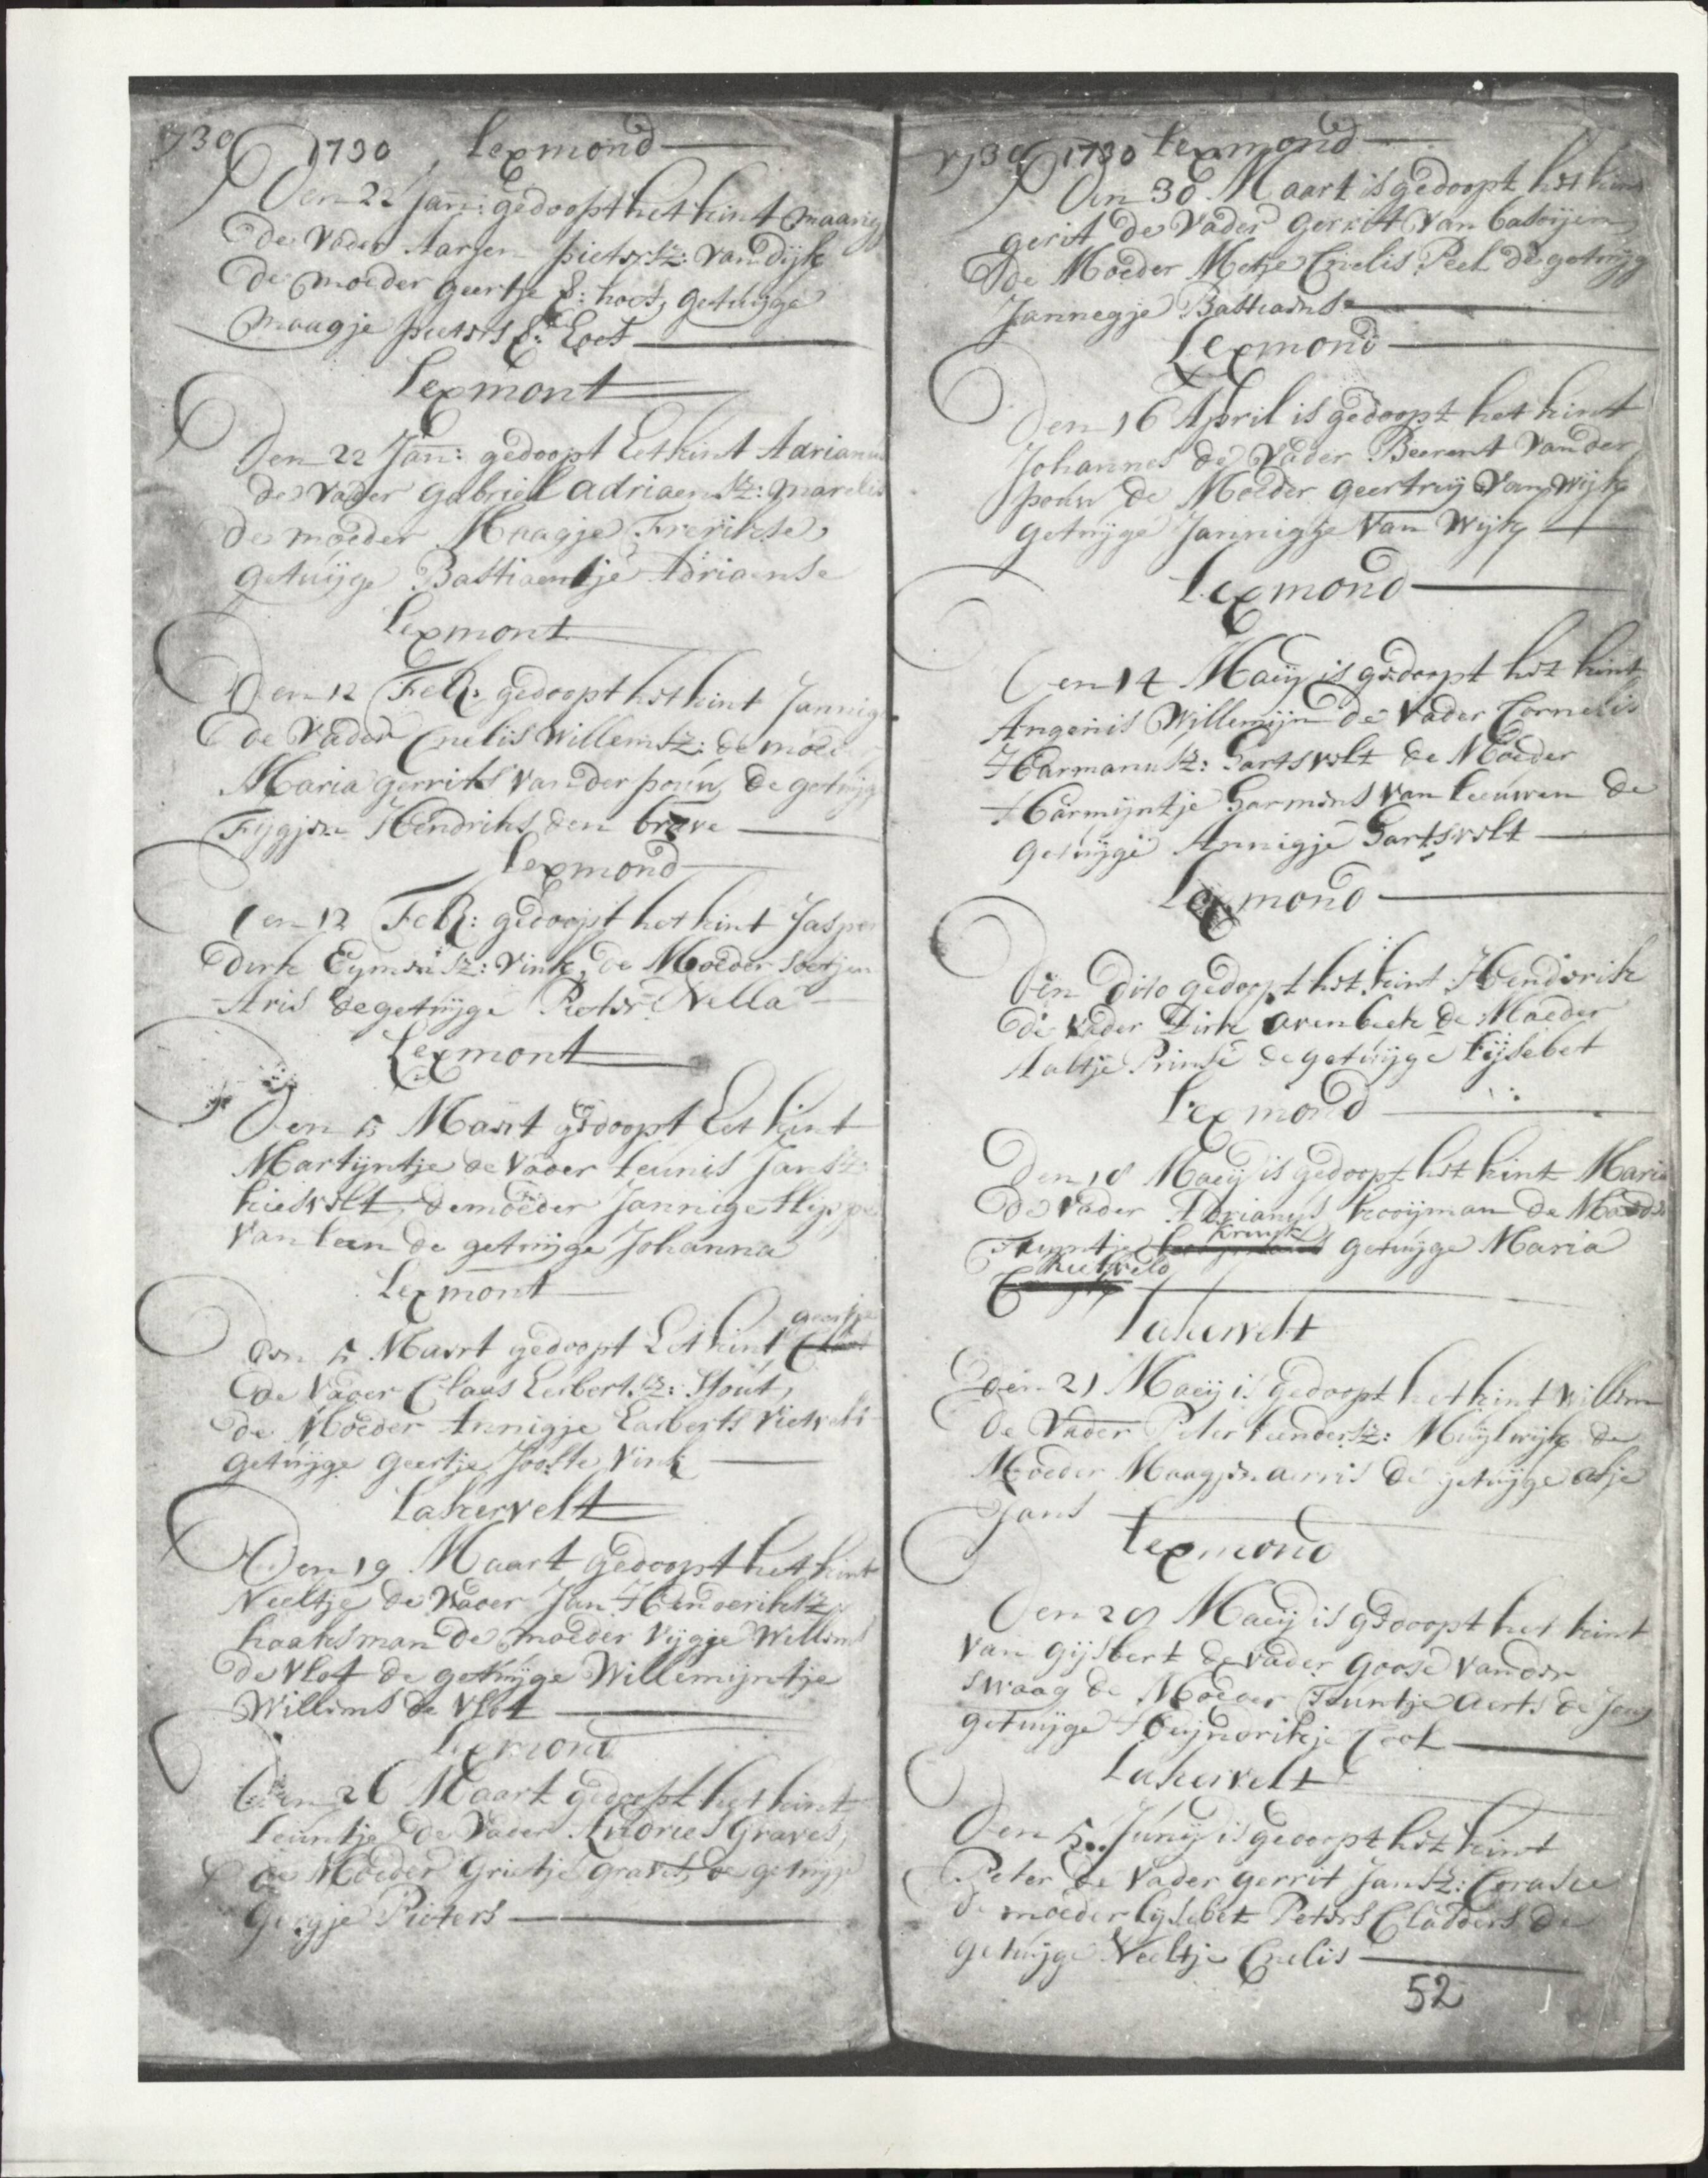 1730 1730 Lexmond
Den 22 Jan: gedoopt het kint Maang
de vader Aarjen pietersz: van Dijk
de moeder geertje E: hoos, getuijge
Maagje pieters E: Loos
Lexmont
Den 22 Jan: gedoopt Eet kint Adrianus
de vader gabriel adriaensz: marelis
de moeder Maagje Frerikse,
getuijge Bastiaentje Adriaense
Lexmont
Den 12 Feb: gedoopt het kint Jannig
de vader Cnelis Willemsz: de moed
Maria gerrits van der pouw, de getuijg
Fijgjen Hendriks den brave
Lexmond
Den 12 Feb: gedoopt het kint Jasper
Dirk Eymensz: Vink, de Moeder soetjen
Aris de getuijge Pieter Nella
Lexmont
Den 5 Maert gedoopt Eet kint
Martijntje de vader teunis Jansz:
kievelt, de moeder Jannige flippe
van leen de getuijge Johanna
Lexmont
Den 5 Maert gedoopt Eet kint geertje
de vader Claas Eerbertsz: Stout,
de Moeder Annigje Earberts Vietvelt
getuijge geertje Jooste Vink
Lakervelt
Den 19 Maart gedoopt het kint
Neeltje de vader Jan Henderiksz
haaksman de moeder Vijgje Willems
de vlot de getuijge Willemijntje
Willems de vlot
Lexmond
Den 26 Maart gedoopt het kint
leuntje de vader Andries Graves,
de Moeder Grietje graves, de getuijge
Gergje Pieters
1730 1730 Lexmond
Den 30 Maart is gedoopt het kint
gerit de vader gerrit van batoijen
de Moeder Metje Cnelis Peel de getuijg
Jannegje Bastiaens
Lexmond
Den 16 April is gedoopt het kint
Johannes de vader Beerent van der
pouw de Moeder geertruij van Wijk
getuijge Jannigje van Wijk
Lexmond
Den 14 Maeij is gedoopt het kint
Angenis Willemijn de vader Cornelis
Harmansz: Gartsvelt de Moeder
Harmijntje Garmens van leeuwen de
getuijge Annigje Gartsvelt
Lexmond
Den Dito gedoopt het kint Henderik
de vader Dirk avenbeek de Moeder
Aaltje Prinse de getuijge lijsebet
Lexmond
Den 18 Maeij is gedoopt het kint Maria
de vader Adrianus kooijman de Moeder
Teuntje Kruijk getuijge Maria
Rietveld
Lakervelt
Den 21 Maeij is gedoopt het kint Willem
de vader Peter leendersz: Muijlwijk de
Moeder Maagjen aerris de getuijge aeltje
Jans
Lexmond
Den 28 Maeij is gedoopt het kint
van gijsbert de vader goose van der
swaag de Moeder Teuntje aerts de Jong
getuijge Heijnderikje Cool
Lakervelt
Den 5 Junij is gedoopt het kint
Peter de vader gerrit Jansz:
de moeder lijsebet Peters Cladders de
getuijge Neeltje Cnelis
52